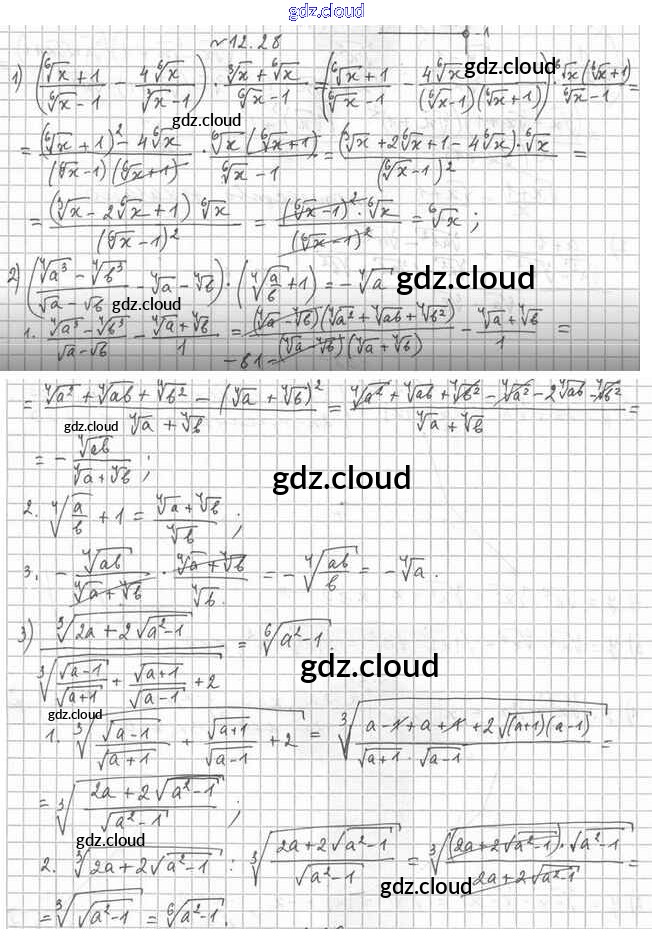 gdz.cloud
№12.28
1) ((⁶√x + 1)/(⁶√x - 1) - 4⁶√x/(³√x - 1)) · (³√x + ⁶√x)/(⁶√x - 1) = ((⁶√x + 1)/(⁶√x - 1) - 4⁶√x/((⁶√x - 1)(⁶√x + 1))) · ⁶√x(⁶√x + 1)/(⁶√x - 1) =
gdz.cloud
gdz.cloud
= ((⁶√x + 1)² - 4⁶√x)/((⁶√x - 1)(⁶√x + 1)) · ⁶√x(⁶√x + 1)/(⁶√x - 1) = (³√x + 2⁶√x + 1 - 4⁶√x) · ⁶√x/(⁶√x - 1)² =
= (³√x - 2⁶√x + 1) ⁶√x/(⁶√x - 1)² = (⁶√x - 1)² · ⁶√x/(⁶√x - 1)² = ⁶√x ;
2) ((⁴√a³ - ⁴√b³)/(√a - √b) - ⁴√a - ⁴√b) · (⁴√(a/b) + 1) = - ⁴√a
gdz.cloud
gdz.cloud
1. (⁴√a³ - ⁴√b³)/(√a - √b) - (⁴√a + ⁴√b)/1 = (⁴√a - ⁴√b)(⁴√a² + ⁴√ab + ⁴√b²)/((⁴√a - ⁴√b)(⁴√a + ⁴√b)) - (⁴√a + ⁴√b)/1 =
- 61 -
= (⁴√a² + ⁴√ab + ⁴√b² - (⁴√a + ⁴√b)²)/(⁴√a + ⁴√b) = (⁴√a² + ⁴√ab + ⁴√b² - ⁴√a² - 2⁴√ab - ⁴√b²)/(⁴√a + ⁴√b) =
gdz.cloud
= - ⁴√ab/(⁴√a + ⁴√b) ;
gdz.cloud
2. ⁴√(a/b) + 1 = (⁴√a + ⁴√b)/⁴√b ;
3. - ⁴√ab/(⁴√a + ⁴√b) · (⁴√a + ⁴√b)/⁴√b = - ⁴√(ab/b) = - ⁴√a.
3) ³√(2a + 2√(a² - 1))/³√(√(a - 1)/√(a + 1) + √(a + 1)/√(a - 1) + 2) = ⁶√(a² - 1).
gdz.cloud
gdz.cloud
1. ³√(√(a - 1)/√(a + 1) + √(a + 1)/√(a - 1) + 2) = ³√((a - 1 + a + 1 + 2√((a + 1)(a - 1)))/(√(a + 1) · √(a - 1))) =
= ³√((2a + 2√(a² - 1))/√(a² - 1)) ;
gdz.cloud
2. ³√(2a + 2√(a² - 1)) : ³√((2a + 2√(a² - 1))/√(a² - 1)) = ³√((2a + 2√(a² - 1)) · √(a² - 1)/(2a + 2√(a² - 1))) =
gdz.cloud
= ³√(√(a² - 1)) = ⁶√(a² - 1).